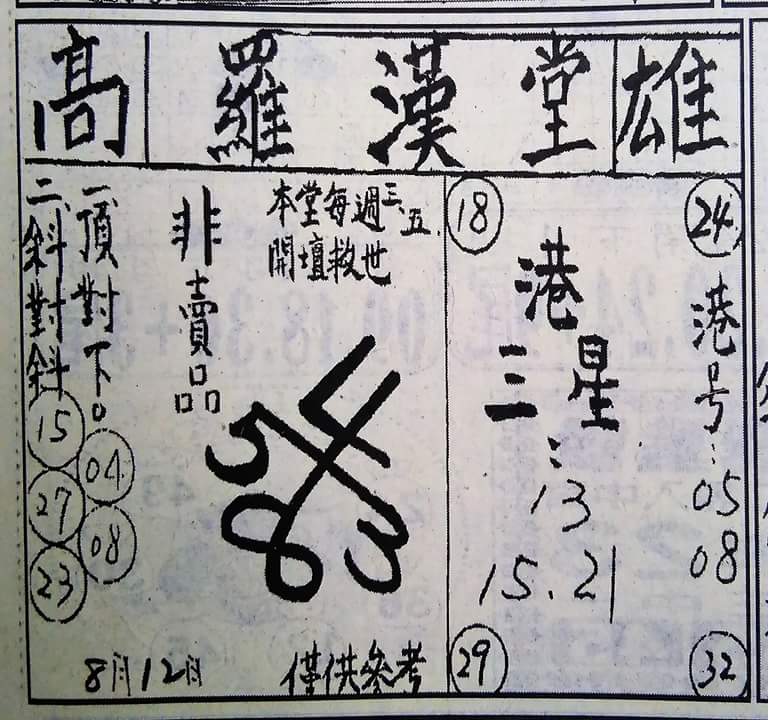 高 羅漢堂 雄
18
24
港号:
05
08
港
三星:
13
15.21
29
32
本堂每週三、五
開壇救世
非賣品
4
5
8
3
一、頂對下。
04
08
二、斜對斜
15
27
23
8月12日
僅供參考